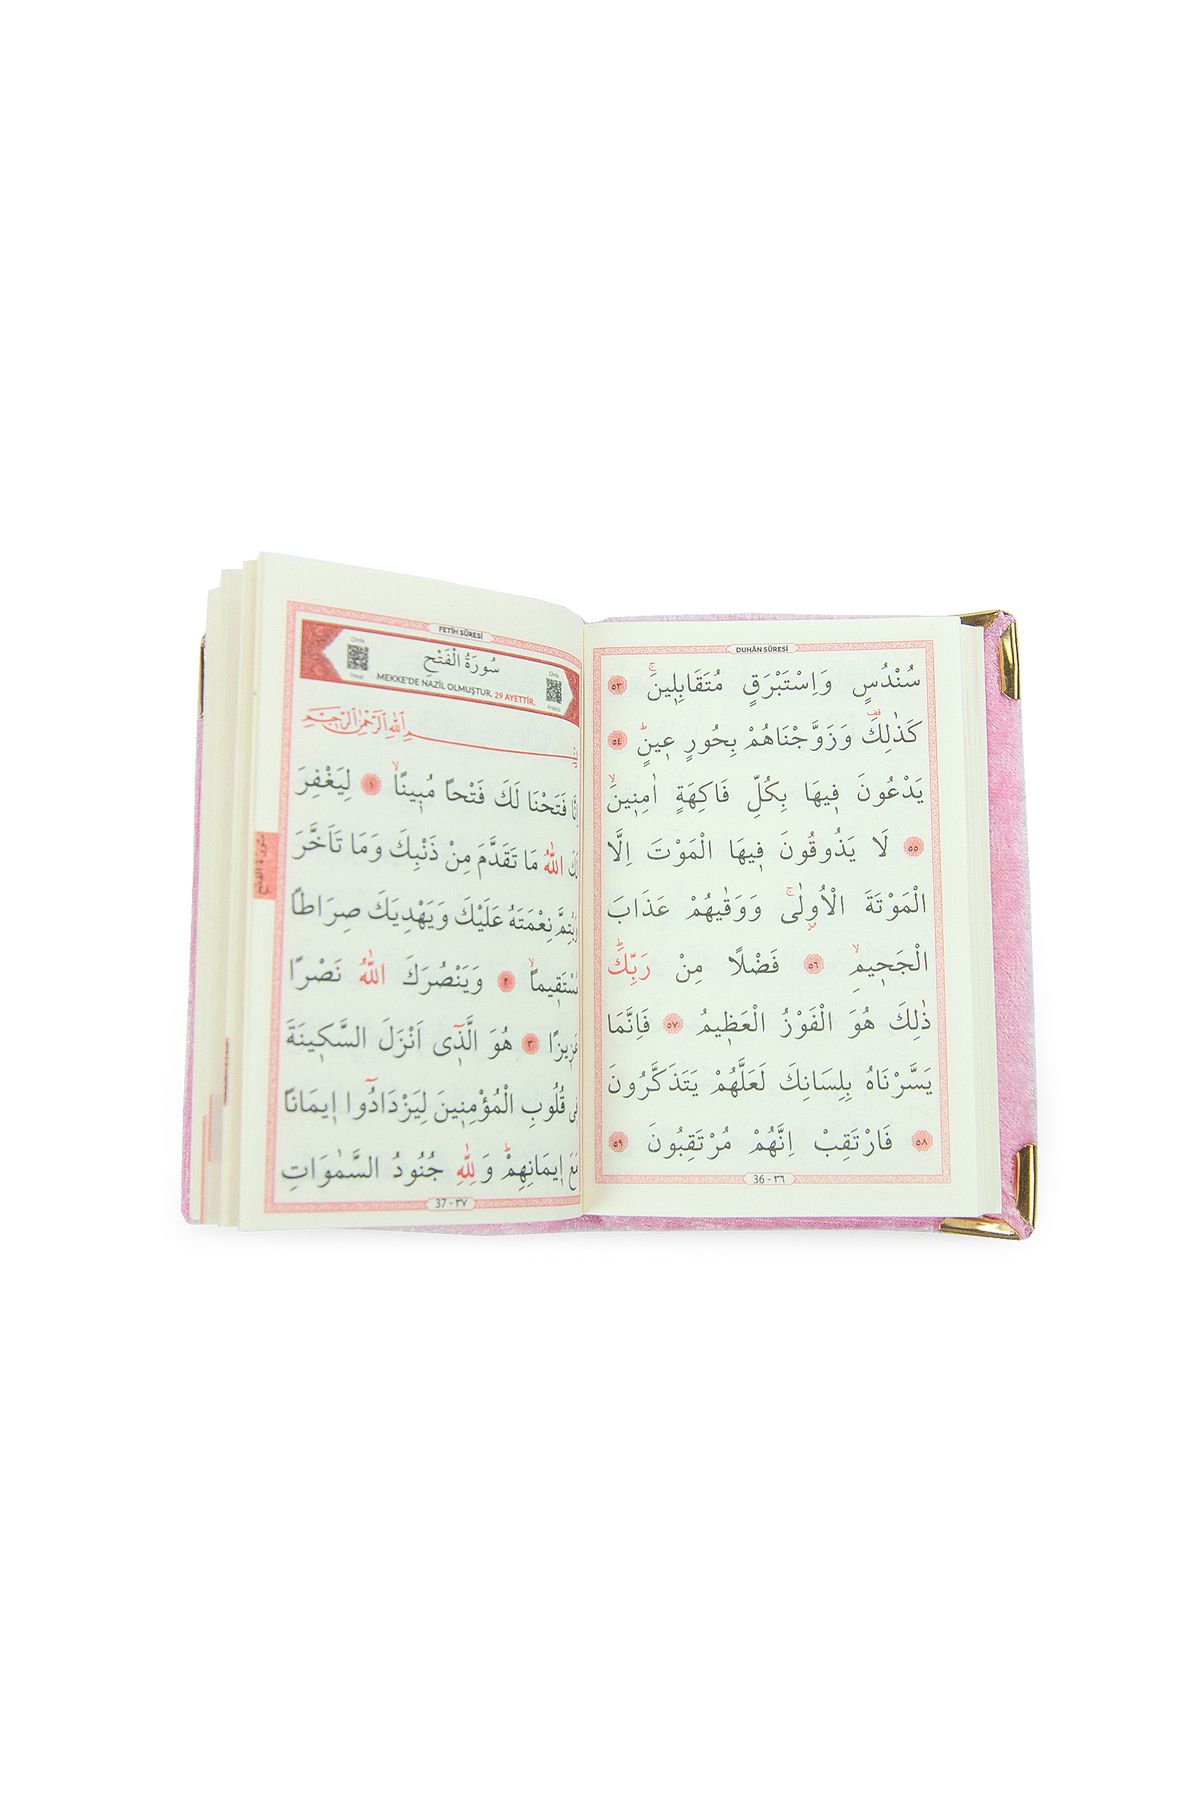 DUHÂN SÛRESİ
سُنْدُسٍ وَاِسْتَبْرَقٍ مُتَقَابِلٖينَۚ ٥٣
كَذٰلِكَ۠ وَزَوَّجْنَاهُمْ بِحُورٍ عٖينٍؕ ٥٤
يَدْعُونَ فٖيهَا بِكُلِّ فَاكِهَةٍ اٰمِنٖينَۙ
٥٥ لَا يَذُوقُونَ فٖيهَا الْمَوْتَ اِلَّا
الْمَوْتَةَ الْاُولٰىۚ وَوَقٰيهُمْ عَذَابَ
الْجَحٖيمِۙ ٥٦ فَضْلًا مِنْ رَبِّكَؕ
ذٰلِكَ هُوَ الْفَوْزُ الْعَظٖيمُ ٥٧ فَاِنَّمَا
يَسَّرْنَاهُ بِلِسَانِكَ لَعَلَّهُمْ يَتَذَكَّرُونَ
٥٨ فَارْتَقِبْ اِنَّهُمْ مُرْتَقِبُونَ ٥٩
36 - ٣٦
FETİH SÛRESİ
Dinle
سُورَةُ الْفَتْحِ
Dinle
MEKKE'DE NAZİL OLMUŞTUR. 29 AYETTİR.
اللّٰهِ الرَّحْمٰنِ الرَّحٖيمِ
فَتَحْنَا لَكَ فَتْحاً مُبٖينًاۙ ١ لِيَغْفِرَ
اللّٰهُ مَا تَقَدَّمَ مِنْ ذَنْبِكَ وَمَا تَاَخَّرَ
وَيُتِمَّ نِعْمَتَهُ عَلَيْكَ وَيَهْدِيَكَ صِرَاطًا
مُسْتَقٖيماًۙ ٢ وَيَنْصُرَكَ اللّٰهُ نَصْرًا
عَزٖيزًا ٣ هُوَ الَّذٖٓى اَنْزَلَ السَّكٖينَةَ
قُلُوبِ الْمُؤْمِنٖينَ لِيَزْدَادُٓوا اٖيمَانًا
مَعَ اٖيمَانِهِمْؕ وَ لِلّٰهِ جُنُودُ السَّمٰوَاتِ
37 - ٣٧
سورة الفتح